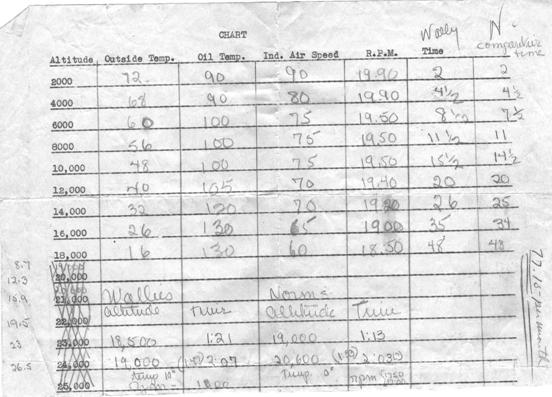 CHART
Wally N.
Altitude Outside Temp. Oil Temp. Ind. Air Speed R.P.M. Time comparative time
2000 72 90 90 19.90 2 2
4000 68 90 80 19.90 4 1/2 4 1/2
6000 60 100 75 19.50 8 1/2 7 1/2
8000 56 100 75 19.50 11 1/2 11
10,000 48 100 75 19.50 15 1/2 14 1/2
12,000 40 105 70 19.40 20 20
14,000 32 120 70 19.20 26 25
16,000 26 130 65 19.00 35 34
18,000 16 130 60 18.50 48 48
8.7 19,000
12.3 20,000
15.9 21,000 Wallies Norms
altitude time altitude Time
19.5 22,000
23 23,000 18,500 1:21 19,000 1:13
26.5 24,000 19,000 2:07 20,600 2:03
25,000 Temp 10° Temp. 0° rpm